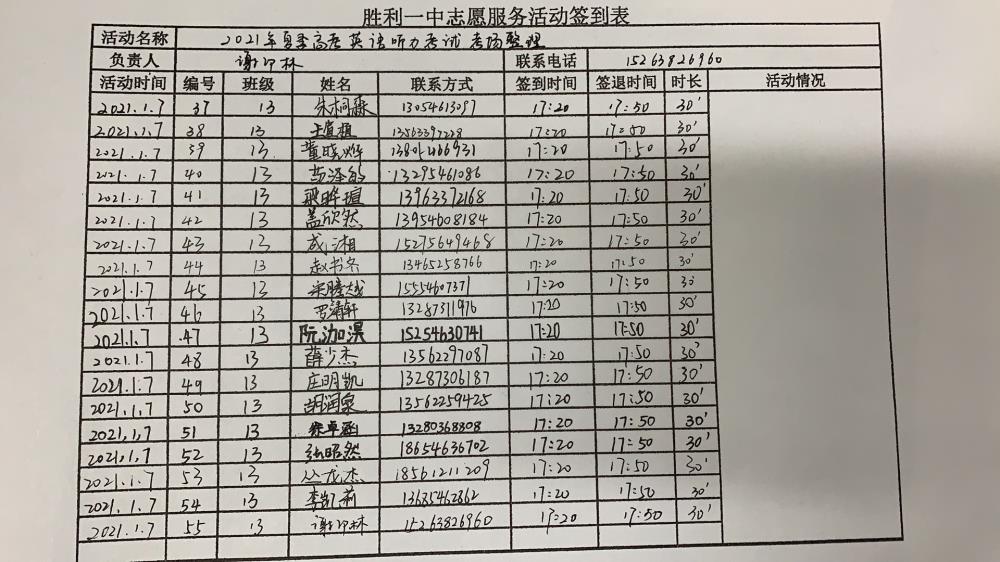 胜利一中志愿服务活动签到表
活动名称 2021年夏季高考英语听力考试 考场整理
负责人 谢印林 联系电话 15263826960
活动时间 编号 班级 姓名 联系方式 签到时间 签退时间 时长 活动情况
2021.1.7 37 13 朱桐森 13054613097 17:20 17:50 30'
2021.1.7 38 13 王宣植 13563397228 17:20 17:50 30'
2021.1.7 39 13 董晓烨 17:20 17:50 30'
2021.1.7 40 13 13295461086 17:20 17:50 30'
2021.1.7 41 13 梁晔瑄 13963372168 17:20 17:50 30'
2021.1.7 42 13 盖欣然 13954608184 17:20 17:50 30'
2021.1.7 43 13 成湘 15275649468 17:20 17:50 30'
2021.1.7 44 13 赵书冬 13465258766 17:20 17:50 30'
2021.1.7 45 13 15554607371 17:20 17:50 30'
2021.1.7 46 13 罗靖轩 13287311976 17:20 17:50 30'
2021.1.7 47 13 阮泇淏 15254630741 17:20 17:50 30'
2021.1.7 48 13 薛少杰 13562297087 17:20 17:50 30'
2021.1.7 49 13 庄明凯 13287306187 17:20 17:50 30'
2021.1.7 50 13 胡润泉 13562259425 17:20 17:50 30'
2021.1.7 51 13 徐卓涵 13280368308 17:20 17:50 30'
2021.1.7 52 13 张昭然 18654636702 17:20 17:50 30'
2021.1.7 53 13 丛龙杰 18561211209 17:20 17:50 30'
2021.1.7 54 13 李凯莉 13685462862 17:20 17:50 30'
2021.1.7 55 13 谢印林 15263826960 17:20 17:50 30'